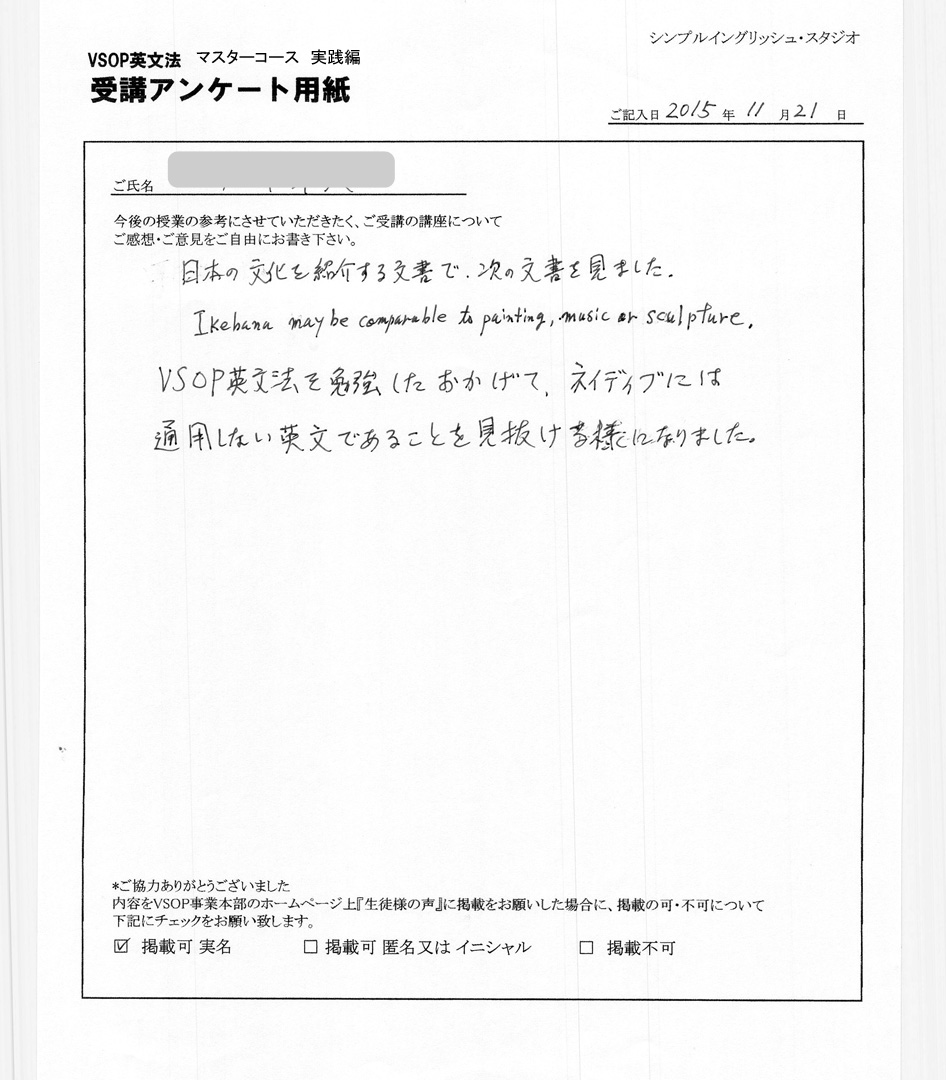 シンプルイングリッシュ・スタジオ
VSOP英文法 マスターコース 実践編
受講アンケート用紙
ご記入日 2015 年 11 月 21 日
ご氏名
今後の授業の参考にさせていただきたく、ご受講の講座について
ご感想・ご意見をご自由にお書き下さい。
日本の文化を紹介する文書で、次の文書を見ました。
Ikebana may be comparable to painting, music or sculpture.
VSOP英文法を勉強したおかげで、ネイディブには
通用しない英文であることを見抜け様になりました。
*ご協力ありがとうございました
内容をVSOP事業本部のホームページ上『生徒様の声』に掲載をお願いした場合に、掲載の可・不可について
下記にチェックをお願い致します。
☑ 掲載可 実名 ☐ 掲載可 匿名又は イニシャル ☐ 掲載不可